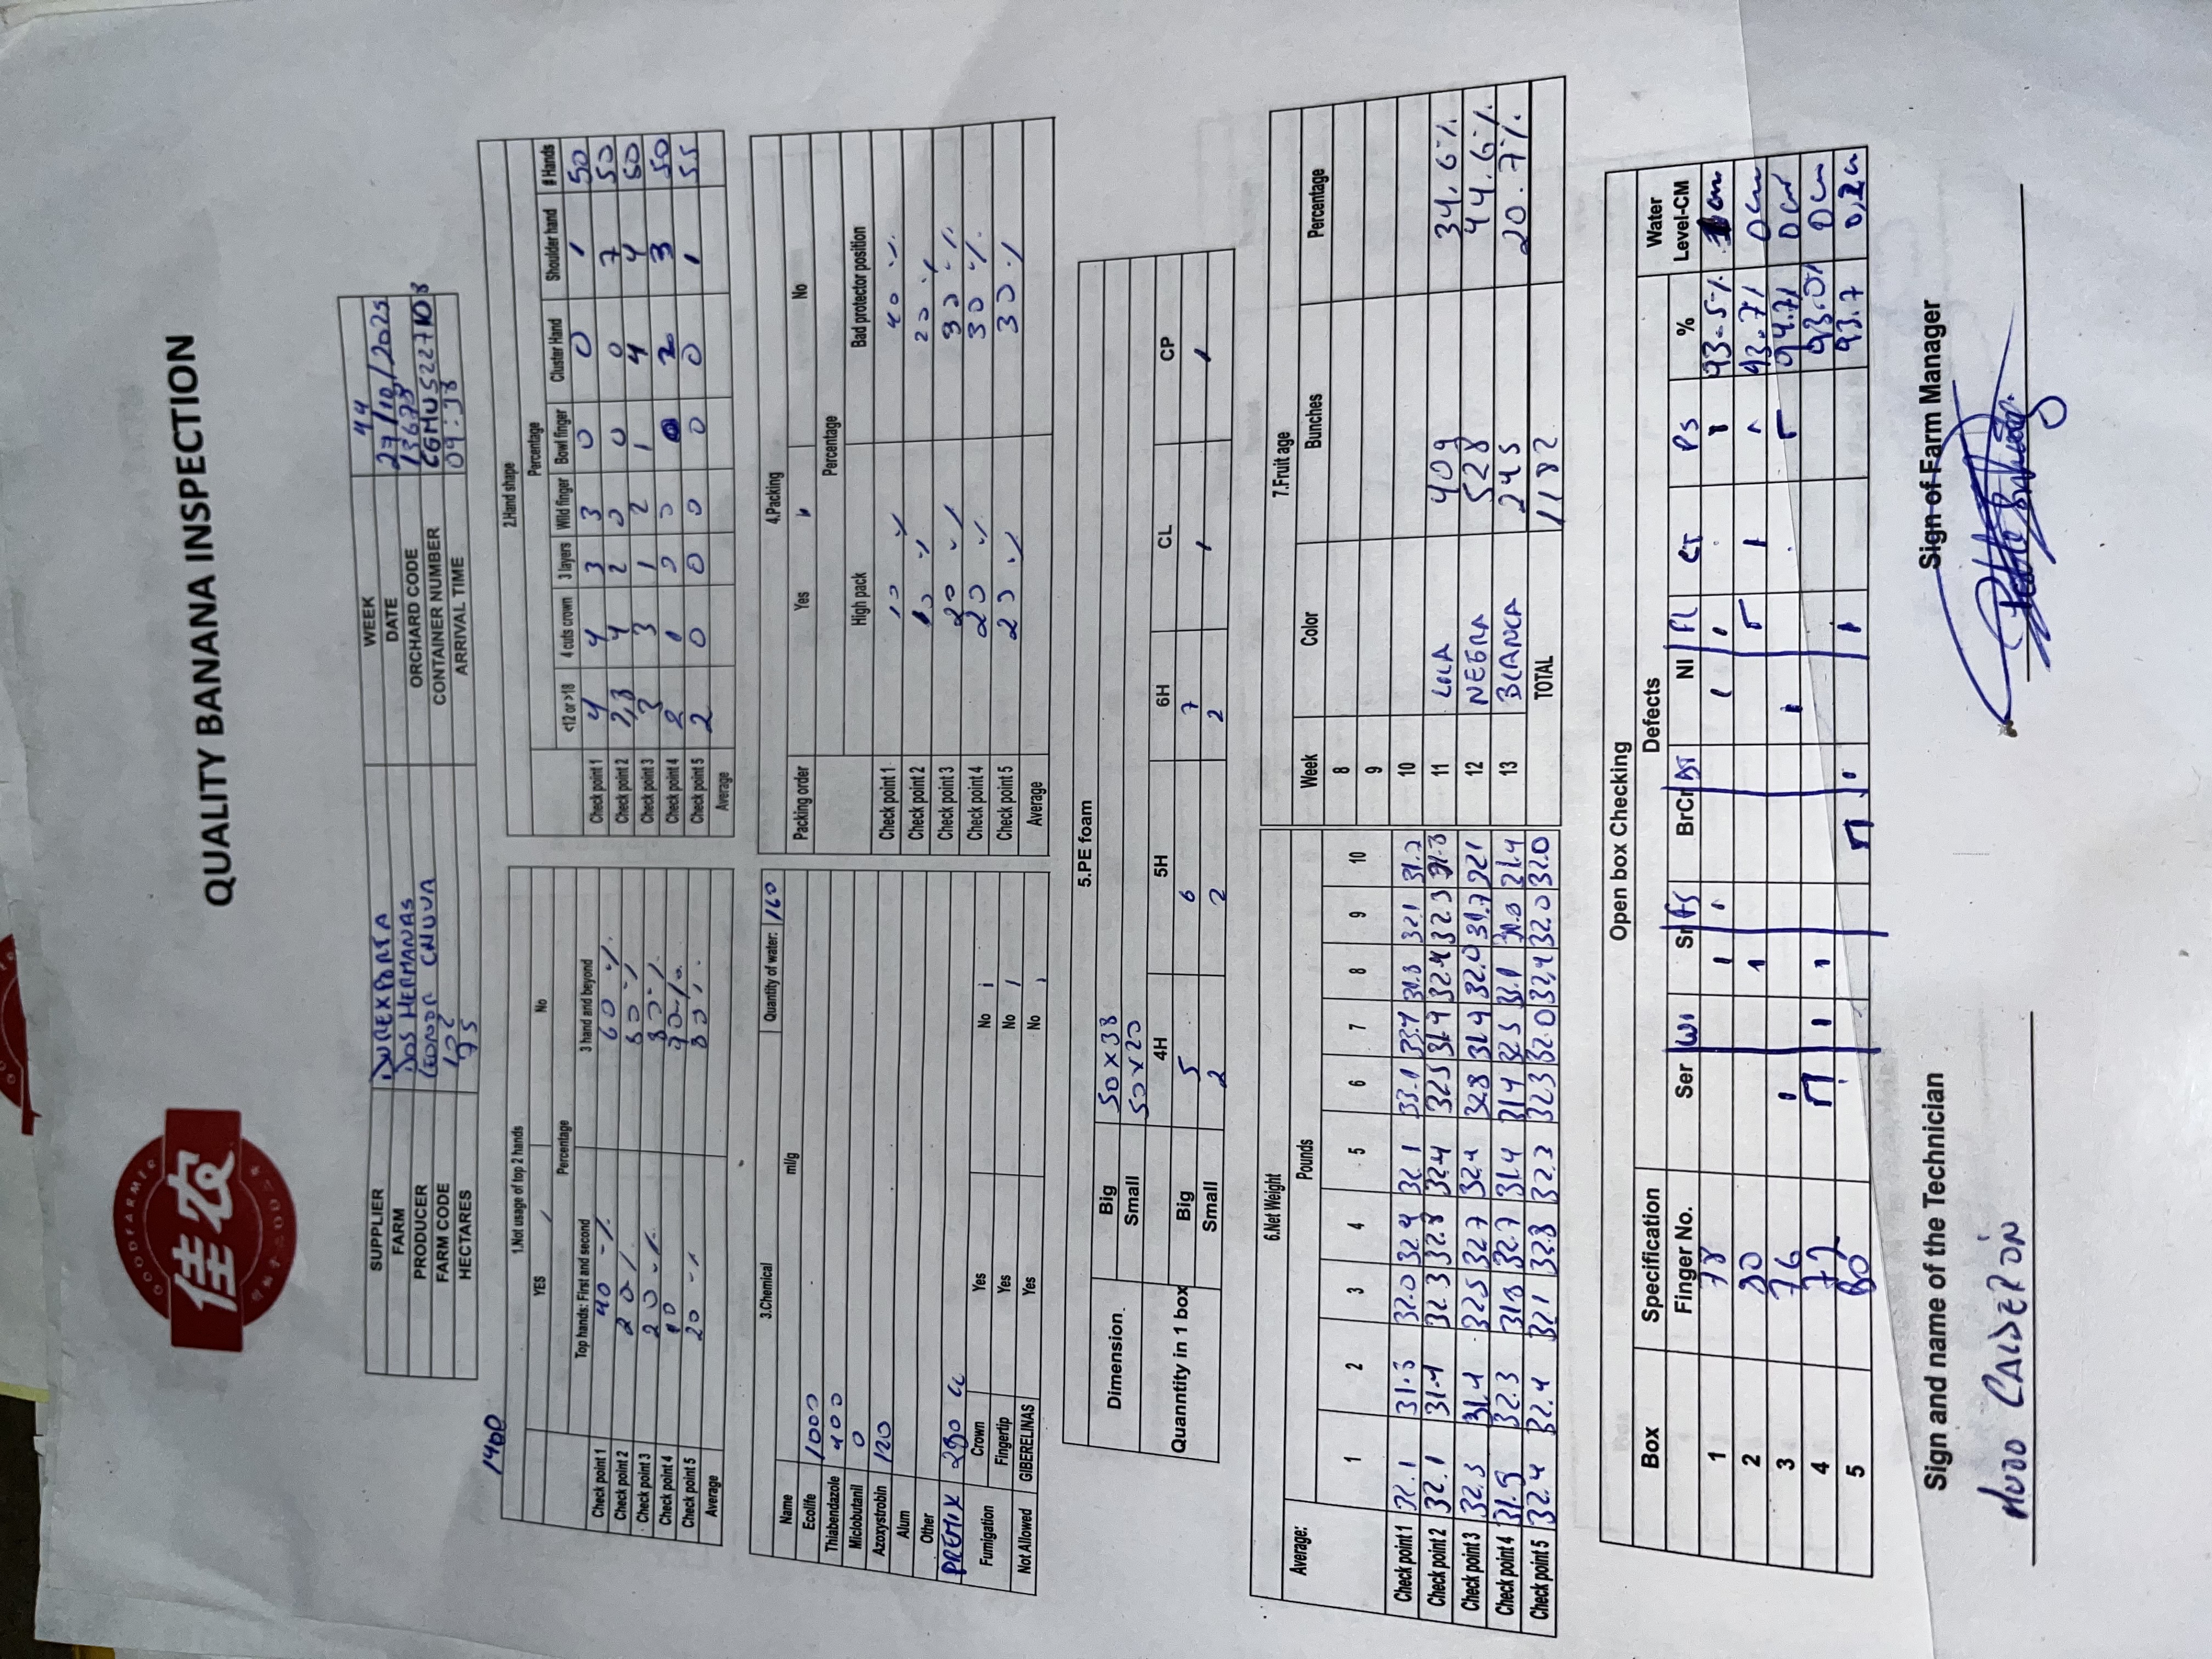 GOODFARMER
佳农
QUALITY BANANA INSPECTION
SUPPLIER DUREXPORTA WEEK 44
FARM DOS HERMANAS DATE 27/10/2025
PRODUCER LEONOR CHUVA ORCHARD CODE 13673
FARM CODE 102 CONTAINER NUMBER CGMU5227108
HECTARES 75 ARRIVAL TIME 09:38
1400
1.Not usage of top 2 hands
YES / No
Percentage
Top hands: First and second 3 hand and beyond
Check point 1 40 % 60 %
Check point 2 20 % 80 %
Check point 3 20 % 80 %
Check point 4 10 90 %
Check point 5 20 % 80 %
Average
2.Hand shape
Percentage
<12 or >18 4 cuts crown 3 layers Wild finger Bowl finger Cluster Hand Shoulder hand # Hands
Check point 1 4 4 3 3 0 0 1 50
Check point 2 4 2 0 0 0 7 50
Check point 3 3 3 1 2 1 4 4 50
Check point 4 2 1 0 0 0 2 3 50
Check point 5 2 0 0 0 0 0 1 55
Average
3.Chemical Quantity of water: 160
Name ml/g
Ecolife 1000
Thiabendazole 400
Miclobutanil 0
Azoxystrobin 120
Alum
Other
PREMIX 280 cc
Fumigation Crown Yes No /
Fingertip Yes No /
Not Allowed GIBERELINAS Yes No /
4.Packing
Packing order Yes No
Percentage
High pack Bad protector position
Check point 1 10 % 40 %
Check point 2 10 % 20 %
Check point 3 20 % 30 %
Check point 4 20 % 30 %
Check point 5 20 % 30 %
Average
5.PE foam
Dimension Big 50x38
Small 50x20
Quanntity in 1 box 4H 5H 6H CL CP
Big 5 6 7 / /
Small 2 2 2
6.Net Weight
Average: Pounds
1 2 3 4 5 6 7 8 9 10
Check point 1 32.1 31.3 32.0 32.4 32.1 33.1 33.4 31.8 32.1 31.2
Check point 2 32.1 31.4 32.3 32.8 32.4 32.5 31.9 32.4 32.3 31.3
Check point 3 32.3 31.4 32.5 32.7 32.4 32.8 31.9 32.0 31.7 32.1
Check point 4 31.9 32.3 31.8 32.7 31.4 31.4 32.5 33.1 31.8 31.4
Check point 5 32.4 32.4 32.1 32.8 32.2 32.3 32.0 32.4 32.0 32.0
7.Fruit age
Week Color Bunches Percentage
8
9
10
11 LILA 409 34.6%
12 NEGRA 528 44.6%
13 BLANCA 245 20.7%
TOTAL 1182
Open box Checking
Box Specification Defects Water
Finger No. Ser Wi Sr FS BrCr DT NI FL CT PS % Level-CM
1 78 93.5% cm
2 80 93.7% 0cm
3 76 94.7% 0cm
4 72 93.0% 0cm
5 80 93.7 0,2cm
Sign and name of the Technician Sign of Farm Manager
HUGO CALDERÓN